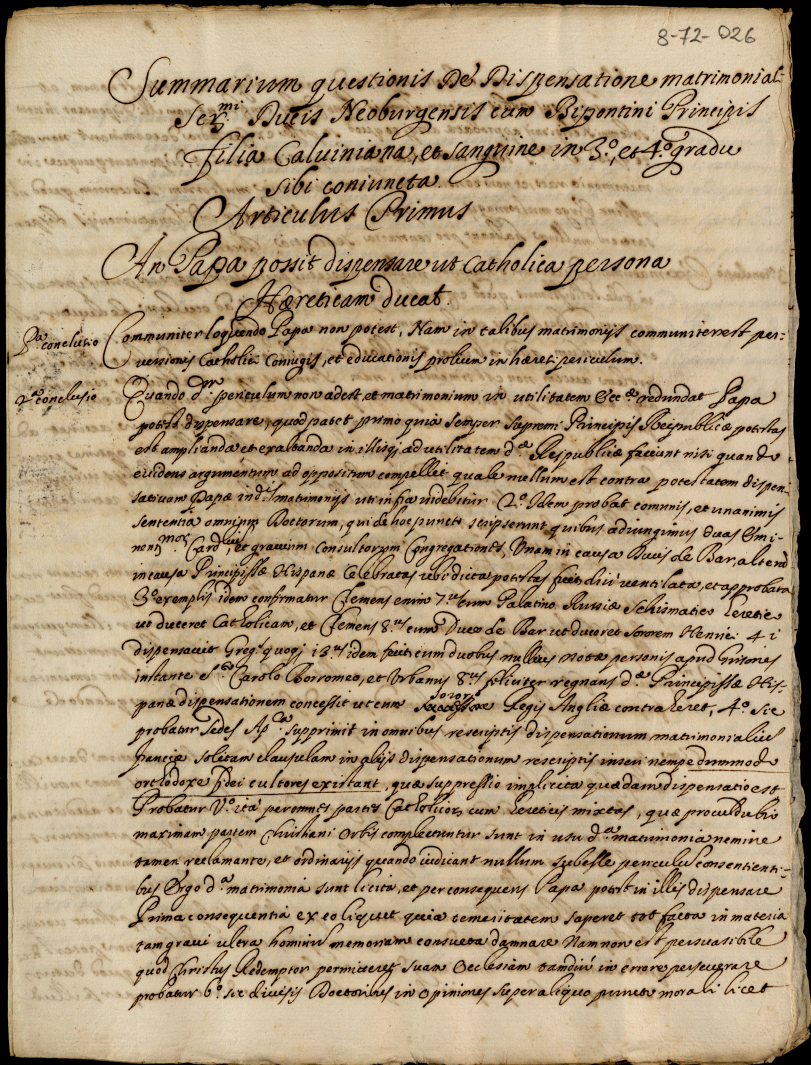 8-72-026
Summarium questionis De Dispensatione matrimonial:
Ser.mi Ducis Neoburgensis cum Bipontini Principis
filia Calviniana, et sanguine in 3.º, et 4.º gradu
sibi coniuncta.
Articulus Primus
An Papa possit dispensare ut Catholica persona
Hæreticam ducat.
Pa. conclusio Communiter loquendo Papa non potest, Nam in talibus matrimonijs communiter est per:
versionis Catholici Coniugis, et educationis prolium in hæret: periculum.
2.a conclusio Quando d.m periculum non adest, et matrimonium in utilitatem Ecc.æ redundat Papa
potest dispensare, quod patet primo quia semper supremi Principis Reipublicæ potestas
est amplianda et exaltanda in illisq; ad utilitatem d.æ Respublicæ faciunt nisi quando
evidens argumentum ad oppositum compellit quale nullum est contra potestatem dispen:
sativam Papæ in d.is matrimonijs uti infra videbitur 2.º Idem probat comunis, et unanimis
sententia omnium Doctorum, qui de hoc puncto scripserunt quibus adiungimus duas Emi:
nent.mor. Card.lium, et gravium Consultorum Congregationes, Unam in causa Ducis de Bar, alteram
in causa Principissæ Hispanæ Celebratas ubi dicta potestas fuit diu ventilata, et approbata
3.º exemplis idem confirmatur Clemens enim 7.us cum Palatino Russiæ Schismatico Heretico
ut duceret Catholicam, et Clemens 8.us cum Duce de Bar ut duceret sororem Henrici 4.i
dispensavit Greg.s quoq; 13.us idem fecit cum duobus nullius notæ personis apud Grisones
instante S.to Carolo Borromeo, et Urbanus 8.us feliciter regnans d.æ Principissæ His:
panæ dispensationem concessit ut cum Successore Regis Angliæ contraheret, 4.º sic
probatur Sedes Ap.ca supprimit in omnibus rescriptis dispensationum matrimonialium
Franciæ solitam clausulam in alijs dispensationum rescriptis inseri nempe dummodo
orthodoxe fidei cultores existant, quæ suppressio implicita quædam dispensatio est
Probatur V.º ita per omnes partes Catholicor. cum hereticis mixtas, quæ proculdubio
maximam partem Christiani Orbis complectuntur sunt in usu d.a matrimonia nemine
tamen reclamante, et ordinarijs quando iudicant nullum subesse periculum consentienti:
bus Ergo d.a matrimonia sunt licita, et per consequens Papa potest in illis dispensare
Prima consequentia ex eo liquet quia temeritatem saperet tot facta in materia
tam gravi ultra hominum memoriam consueta damnare Nam non est persuasibile
quod Christus Redemptor permitteret suam Ecclesiam tamdiu in errore perseverare
probatur 6.º sic divisis Doctoribus in Opiniones super aliquo puncto morali licet